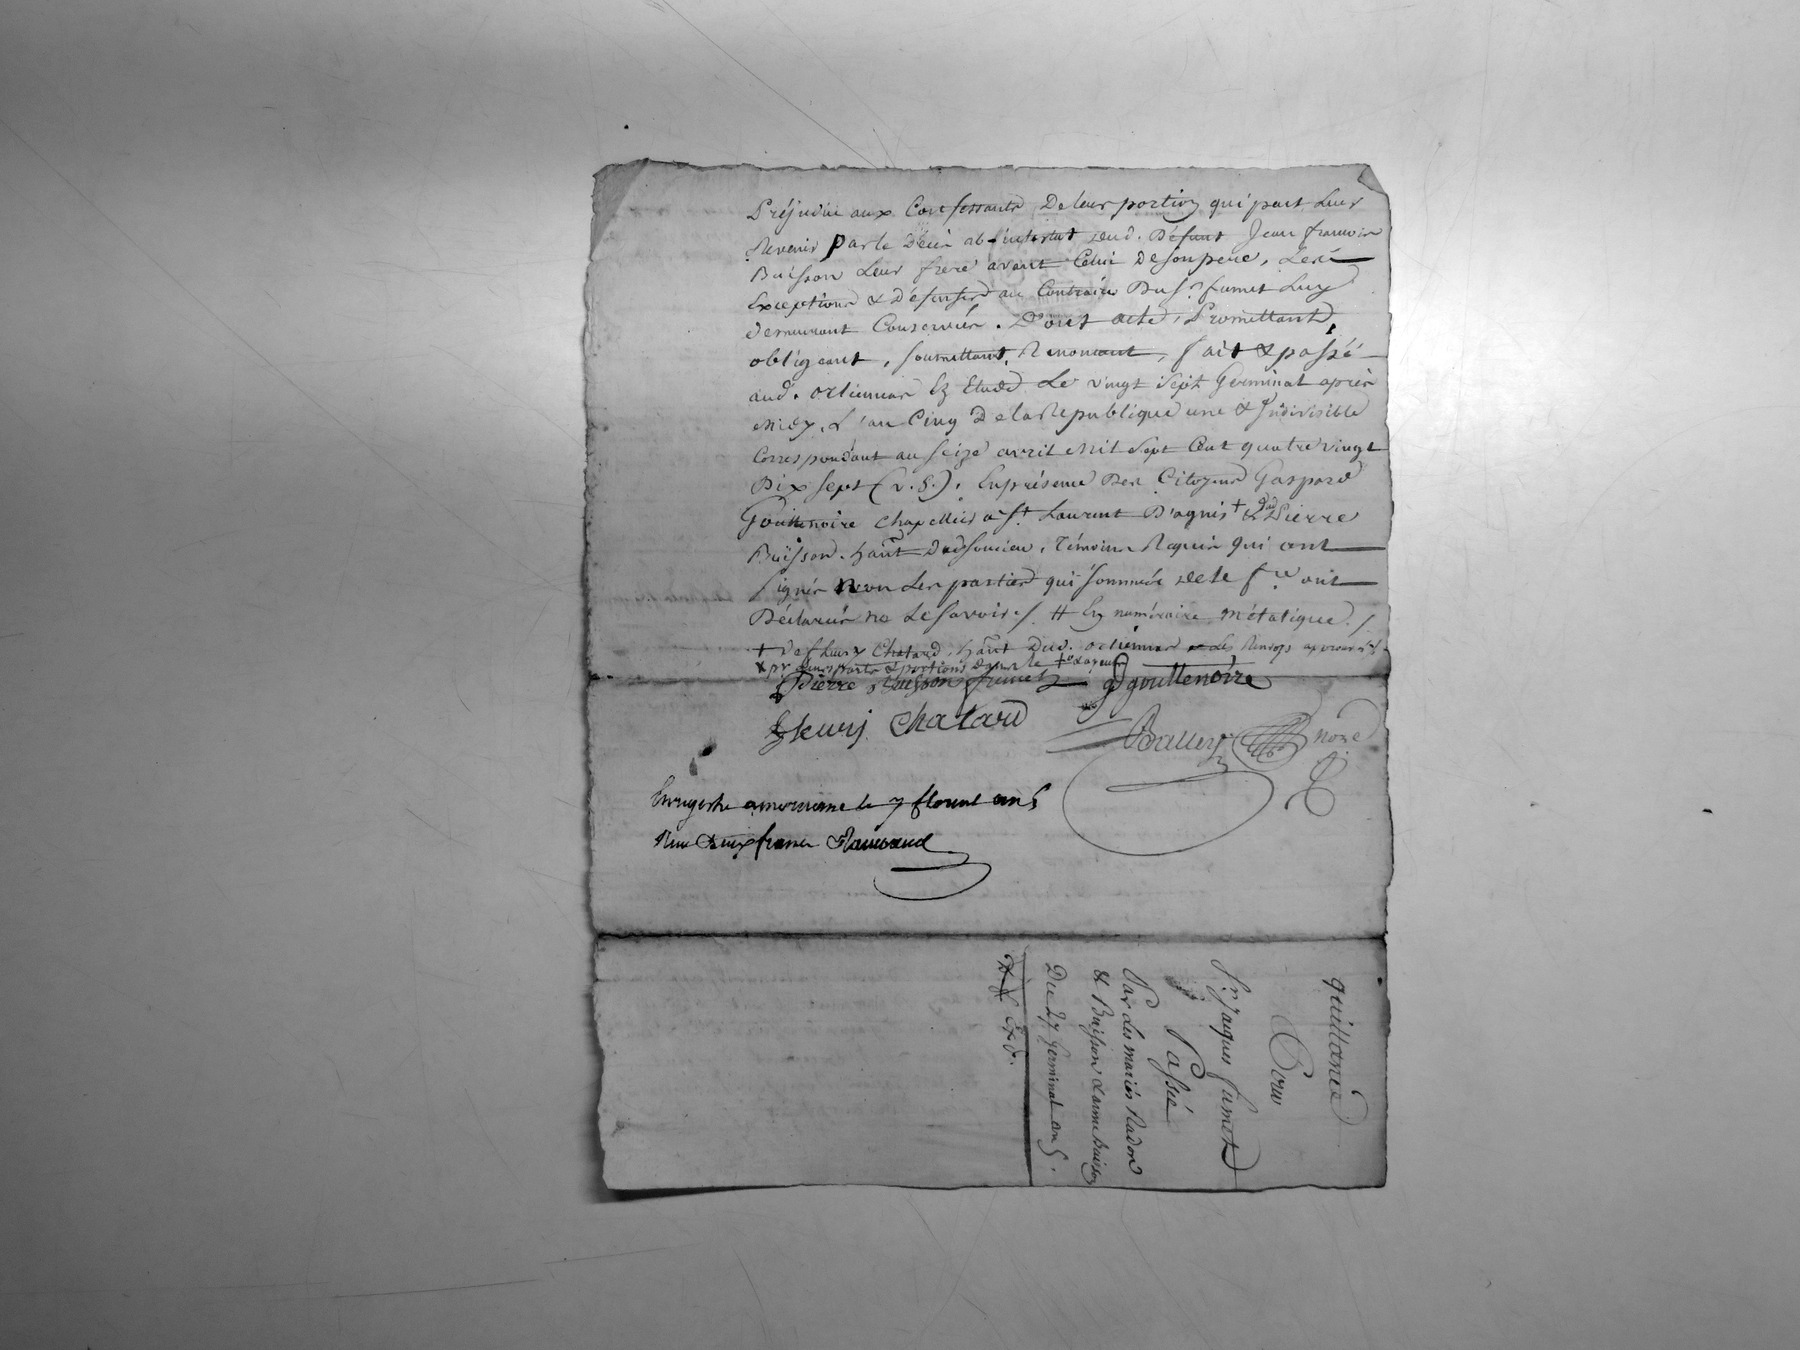 Préjudice aux Confessants De leur portion qui peut Leur
Revenir par le Décès ab-intestat dud. Défunt Jean francois
Buisson Leur frere avant Celui De son pere, Les
Exceptions & Défenses au Contraire Dud. fumet Luy
demeurant Conservées. Dont acte, Promettants,
obligeant, soumettant, Renoncant, fait & passé
aud. ordiennas En Etude Le vingt Sept Germinal après
midy, L'an Cinq De la Republique une & Indivisible
Correspondant au seize avril Mil Sept Cent quatre vingt
Dix sept (v. S.). En présence Des Citoyens Gaspard
Gouttenoire Chapellier a St. Laurent D'agnis + & Pierre
Buisson. hant Dud Soucieu, Témoins Requis qui ont
signés non Les parties qui sommées de le fre ont
Déclarés ne Le savoir ./. # En numéraire métalique ./
+ De henry Chatard, hant Dud. ordiennas Les Renvoys approuvés
Pierre Buisson fumet Ggouttenoire
henry Chatard
Balley nore
Enregistré a mornant le 7 floreal an 5
Recu Deux francs
quittance
Pour
Sr. Jacques fumet
Passée
Par Les mariés Radon
& Buisson & anne Buisson
Du 27 Germinal an 5.
Exd.